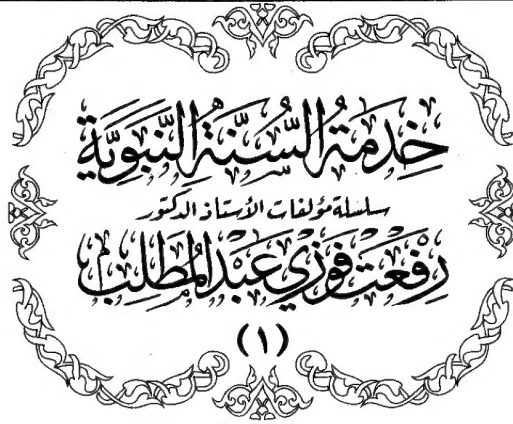 خِدْمَةُ السُّنَّةِ النَّبَوِيَّةِ
سلسلة مؤلفات الأستاذ الدكتور
رِفْعَتْ فَوْزِي عَبْدُ المُطَّلِبِ
(١)